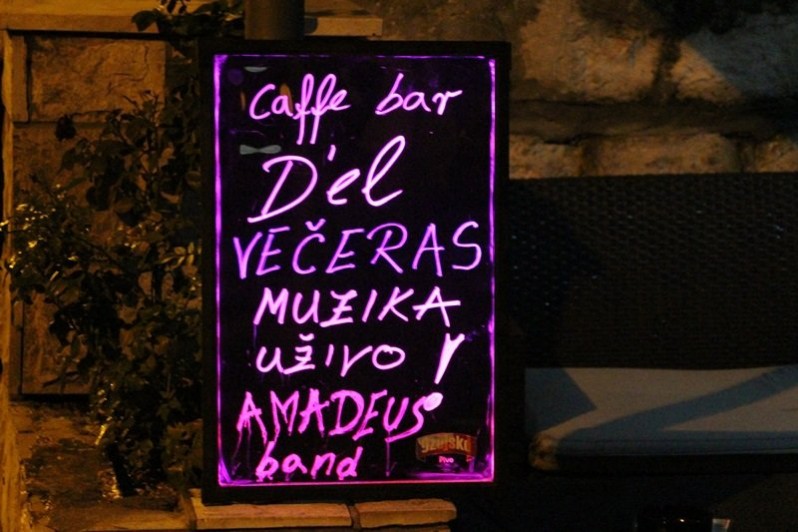 caffe bar
D'el
VEČERAS
MUZIKA
UŽIVO !
AMADEUS
band
Pivo